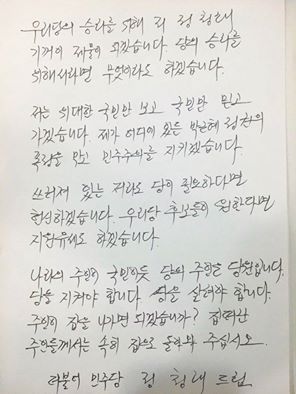 우리당의 승리를 위해 저 정청래
기꺼이 제물이 되겠습니다. 당의 승리를
위해서라면 무엇이라도 하겠습니다.
저는 위대한 국민만 보고 국민만 믿고
가겠습니다. 제가 어디에 있든 박근혜 정권의
폭정을 막고 민주주의를 지키겠습니다.
쓰러져 있는 저라도 당이 필요하다면
헌신하겠습니다. 우리당 후보들이 원한다면
지원유세도 하겠습니다.
나라의 주인이 국민이듯 당의 주인은 당원입니다.
당을 지켜야 합니다. 당을 살려야 합니다.
주인이 집을 나가면 되겠습니까? 집 떠난
주인들께서는 속히 집으로 돌아와 주십시오.
더불어 민주당 정청래 드림